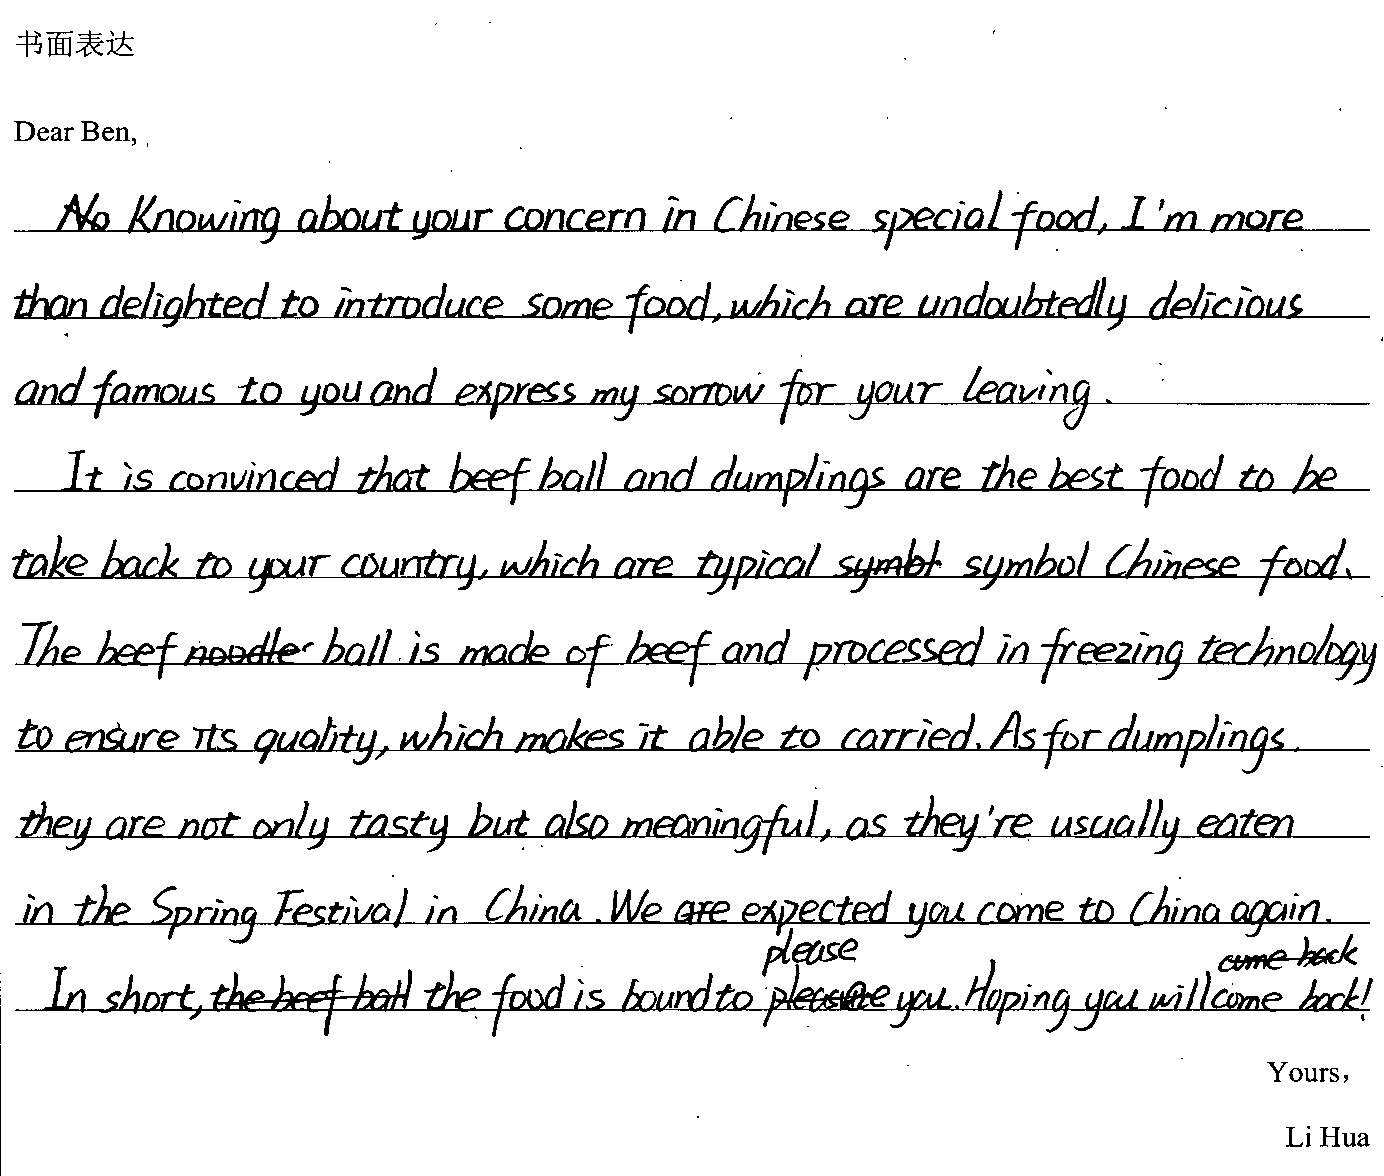 书面表达
Dear Ben,
Knowing about your concern in Chinese special food, I'm more
than delighted to introduce some food, which are undoubtedly delicious
and famous to you and express my sorrow for your leaving.
It is convinced that beef ball and dumplings are the best food to be
take back to your country, which are typical symbol Chinese food.
The beef ball is made of beef and processed in freezing technology
to ensure its quality, which makes it able to carried. As for dumplings,
they are not only tasty but also meaningful, as they're usually eaten
in the Spring Festival in China. We are expected you come to China again.
In short, the food is bound to please you. Hoping you will come back!
Yours,
Li Hua